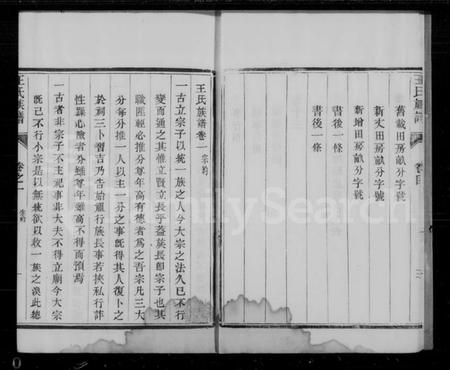 王氏族譜
卷目
舊載田房畝分字號
新丈田房畝分字號
新增田房畝分字號
書後一條
書後一條
王氏族譜卷一 宗約
一古立宗子以統一族之人今大宗之法久已不行
變而通之其惟立賢立長乎蓋族長即宗子也其
職匪輕必推分尊年高有德者為之吾宗凡三大
分每分推一人以主一分之事旣得其人復卜之
於祠三卜習吉乃告始祖行族長事若挾私行詐
性躁心險者分雖尊年雖高不得而預焉
一古者非宗子不主祀事非大夫不得立廟今大宗
旣已不行小宗是以無統欲以收一族之渙此總
王氏族譜
卷之一
宗約
FamilySearch